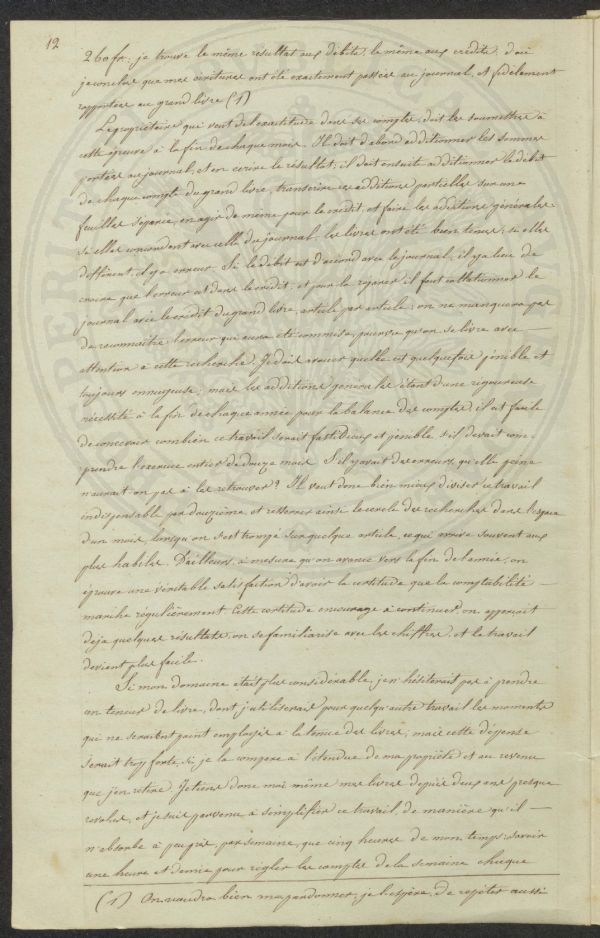 12
260 fr. je trouve le même résultat aux débits, le même aux crédits, d'où
je conclus que mes écritures ont été exactement passées au journal, et fidèlement
rapportées au grand livre (1)
Le propriétaire qui veut de l'exactitude dans ses comptes, doit les soumettre à
cette épreuve à la fin de chaque mois. Il doit d'abord additionner les sommes
portées au journal, et en écrire le résultat; il doit ensuite additionner le débit
de chaque compte du grand livre, transcrire ces additions partielles sur une
feuille séparée, en agir de même pour le crédit, et faire les additions générales:
si elles concordent avec celle du journal les livres ont été bien tenus; si elles
diffèrent, il y a erreur. Si le débit est d'accord avec le journal, il y a lieu de
croire que l'erreur est dans le crédit; et pour la réparer il faut collationner le
journal avec le crédit du grand livre, article par article: on ne manquera pas
de reconnaître l'erreur qui aura été commise, pourvu qu'on se livre avec
attention à cette recherche. Je dois avouer qu'elle est quelquefois pénible et
toujours ennuyeuse; mais les additions générales étant d'une rigoureuse
nécessité à la fin de chaque année pour la balance des comptes, il est facile
de concevoir combien ce travail serait fastidieux et pénible s'il devait com-
prendre l'exercice entier de douze mois. S'il y avait des erreurs, qu'elle peine
n'aurait-on pas à les retrouver? Il vaut donc bien mieux diviser ce travail
indispensable par douzième, et resserrer ainsi le cercle des recherches dans l'espace
d'un mois, lorsqu'on s'est trompé sur quelque article, ce qui arrive souvent aux
plus habiles. D'ailleurs, à mesure qu'on avance vers la fin de l'année, on
éprouve une véritable satisfaction d'avoir la certitude que la comptabilité
marche régulièrement. Cette certitude encourage à continuer, on apperçoit
déjà quelques résultats, on se familiarise avec les chiffres, et le travail
devient plus facile.
Si mon domaine était plus considérable, je n'hésiterais pas à prendre
un teneur de livres, dont j'utiliserais pour quelqu'autre travail les moments
qui ne seraient point employés à la tenue des livres, mais cette dépense
serait trop forte, si je la compare à l'étendue de ma propriété et au revenu
que j'en retire. Je tiens donc moi même mes livres depuis deux ans presque
révolus, et je suis parvenu à simplifier ce travail, de manière qu'il
n'absorbe à peu près, par semaine, que cinq heures de mon temps: savoir
une heure et demie pour régler les comptes de la semaine chaque
(1) On voudra bien me pardonner, je l'espère, de répéter aussi